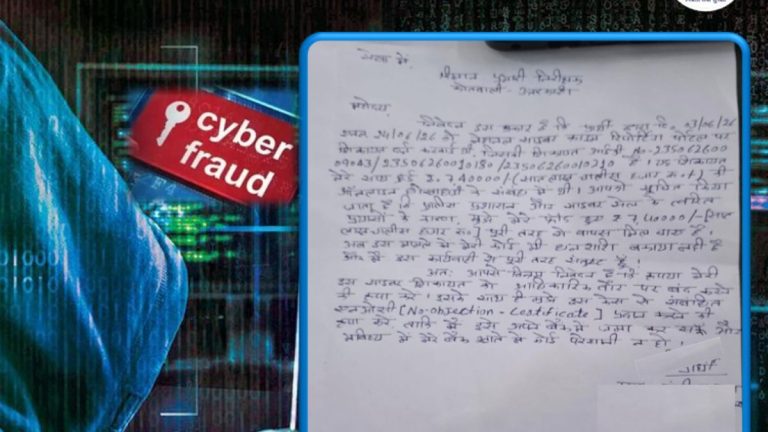 cyber
fraud
सेवा में,
श्रीमान प्रभारी निरीक्षक
कोतवाली - उत्तरकाशी
महोदय,
निवेदन इस प्रकार है कि प्रार्थी द्वारा दि० 03/06/26
24/06/26 को नेशनल साइबर क्राइम रिपोर्टिंग पोर्टल पर
शिकायत दर्ज करवाई थी, जिसकी शिकायत आईडी No-235062600
/23506260010210 है। यह शिकायत
मेरे साथ हुई ₹.740000/(सात लाख चालीस हजार रू०) की
ऑनलाइन धोखाधड़ी के संबंध में थी। आपको सूचित किया
जाता है कि पुलिस प्रशासन और साइबर सेल के त्वरित
प्रयासों के कारण, मुझे मेरे ₹ 740000/-
लाख चालीस हजार रू०] पूरी तरह से वापस मिल गया है।
अब इस मामले में मेरी कोई भी धनराशि बकाया नहीं है
और मैं इस कार्यवाही से पूरी तरह संतुष्ट हूँ।
अतः आपसे विनम्र निवेदन है कि कृपया मेरी
इस साइबर शिकायत को आधिकारिक तौर पर बंद करने
की कृपा करें। इसके साथ ही मुझे इस केस से संबंधित
एनओसी [No-obsection - Ceatificate] प्रदान करने की
कृपा करें, ताकि मैं इसे अपने बैंक में जमा कर सकूं और
भविष्य में मेरे बैंक खाते में कोई परेशानी न हो।
प्रार्थी